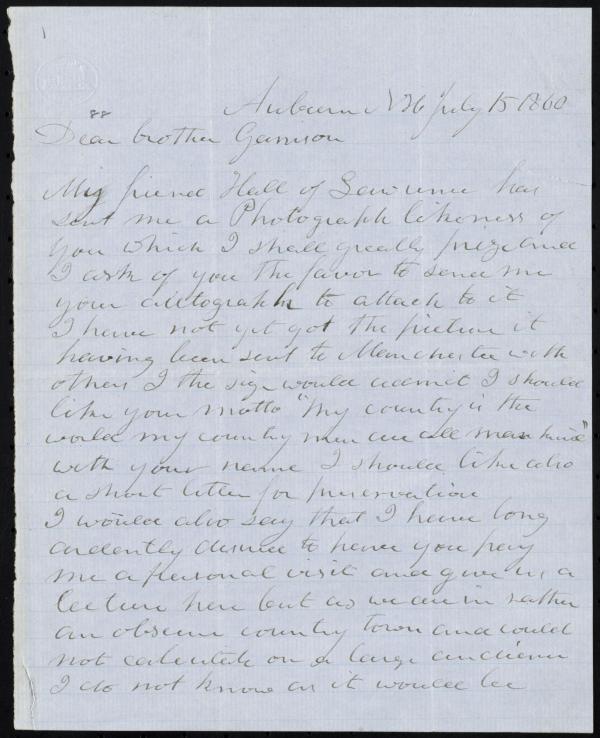 Auburn NH July 15 1860
Dear brother Garrison
My friend Hall of Lawrence has
sent me a Photograph likeness of
you which I shall greatly prize and
I ask of you the favor to send me
your autograph to attach to it
I have not yet got the picture it
having been sent to Manchester with
others I the size would admit I should
like your motto "My country is the
world my country men are all mankind"
with your name I should like also
a short letter for preservation
I would also say that I have long
ardently desired to have you pay
me a personal visit and give us a
lecture here but as we are in rather
an obscure country town and could
not calculate on a large audience
I do not know as it would be